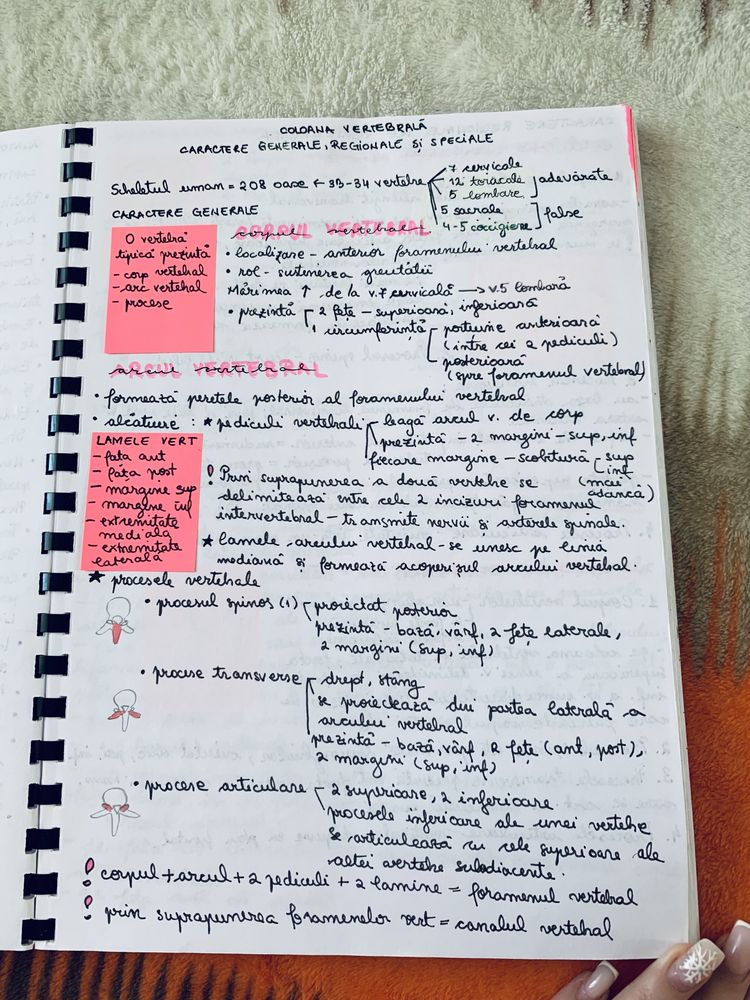 COLOANA VERTEBRALĂ
CARACTERE GENERALE, REGIONALE și SPECIALE
Scheletul uman = 208 oase ← 33-34 vertebre
7 cervicale
12 toracale
5 lombare
adevărate
5 sacrale
4-5 coccigiene
false
CARACTERE GENERALE
O vertebră
tipică prezintă
- corp vertebral
- arc vertebral
- procese
CORPUL VERTEBRAL
corpul vertebral
• localizare - anterior foramenului vertebral
• rol - susținerea greutății
Mărimea ↑ de la v.7 cervicală → v.5 lombară
• prezintă - 2 fețe - superioară, inferioară
1 circumferință - porțiune anterioară
(între cei 2 pediculi)
posterioară
(spre foramenul vertebral)
ARCUL VERTEBRAL
arcul vertebral
• formează peretele posterior al foramenului vertebral
• alcătuire : ★ pediculi vertebrali - leagă arcul v. de corp
prezintă - 2 margini - sup, inf
fiecare margine - scobitură - sup
inf
(mai adâncă)
LAMELE VERT
- fața ant
- fața post
- margine sup
- margine inf
- extremitate
medială
- extremitate
laterală
! Prin suprapunerea a două vertebre se
delimitează între cele 2 incizuri foramenul
intervertebral - transmite nervii și arterele spinale.
★ lamele arcului vertebral - se unesc pe linia
mediană și formează acoperișul arcului vertebral.
★ procesele vertebrale
• procesul spinos (1) - proiectat posterior
prezintă - bază, vârf, 2 fețe laterale,
2 margini (sup, inf)
• procese transverse - drept, stâng
se proiectează din partea laterală a
arcului vertebral
prezintă - bază, vârf, 2 fețe (ant, post),
2 margini (sup, inf)
• procese articulare - 2 superioare, 2 inferioare.
procesele inferioare ale unei vertebre
se articulează cu cele superioare ale
altei vertebre subdiacente.
! corpul + arcul + 2 pediculi + 2 lamine = foramenul vertebral
! prin suprapunerea foramenelor vert = canalul vertebral